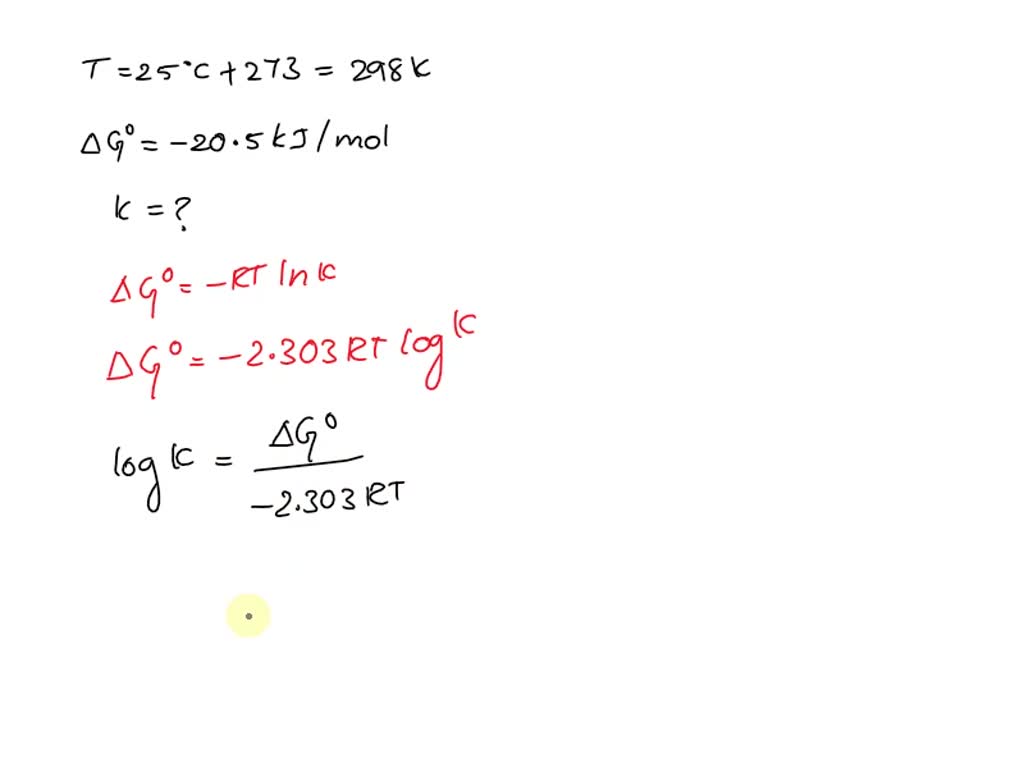 T = 25°C + 273 = 298 K
ΔG° = -20.5 kJ/mol
K = ?
ΔG° = -RT ln K
ΔG° = -2.303 RT log K
log K = ΔG° / -2.303 RT